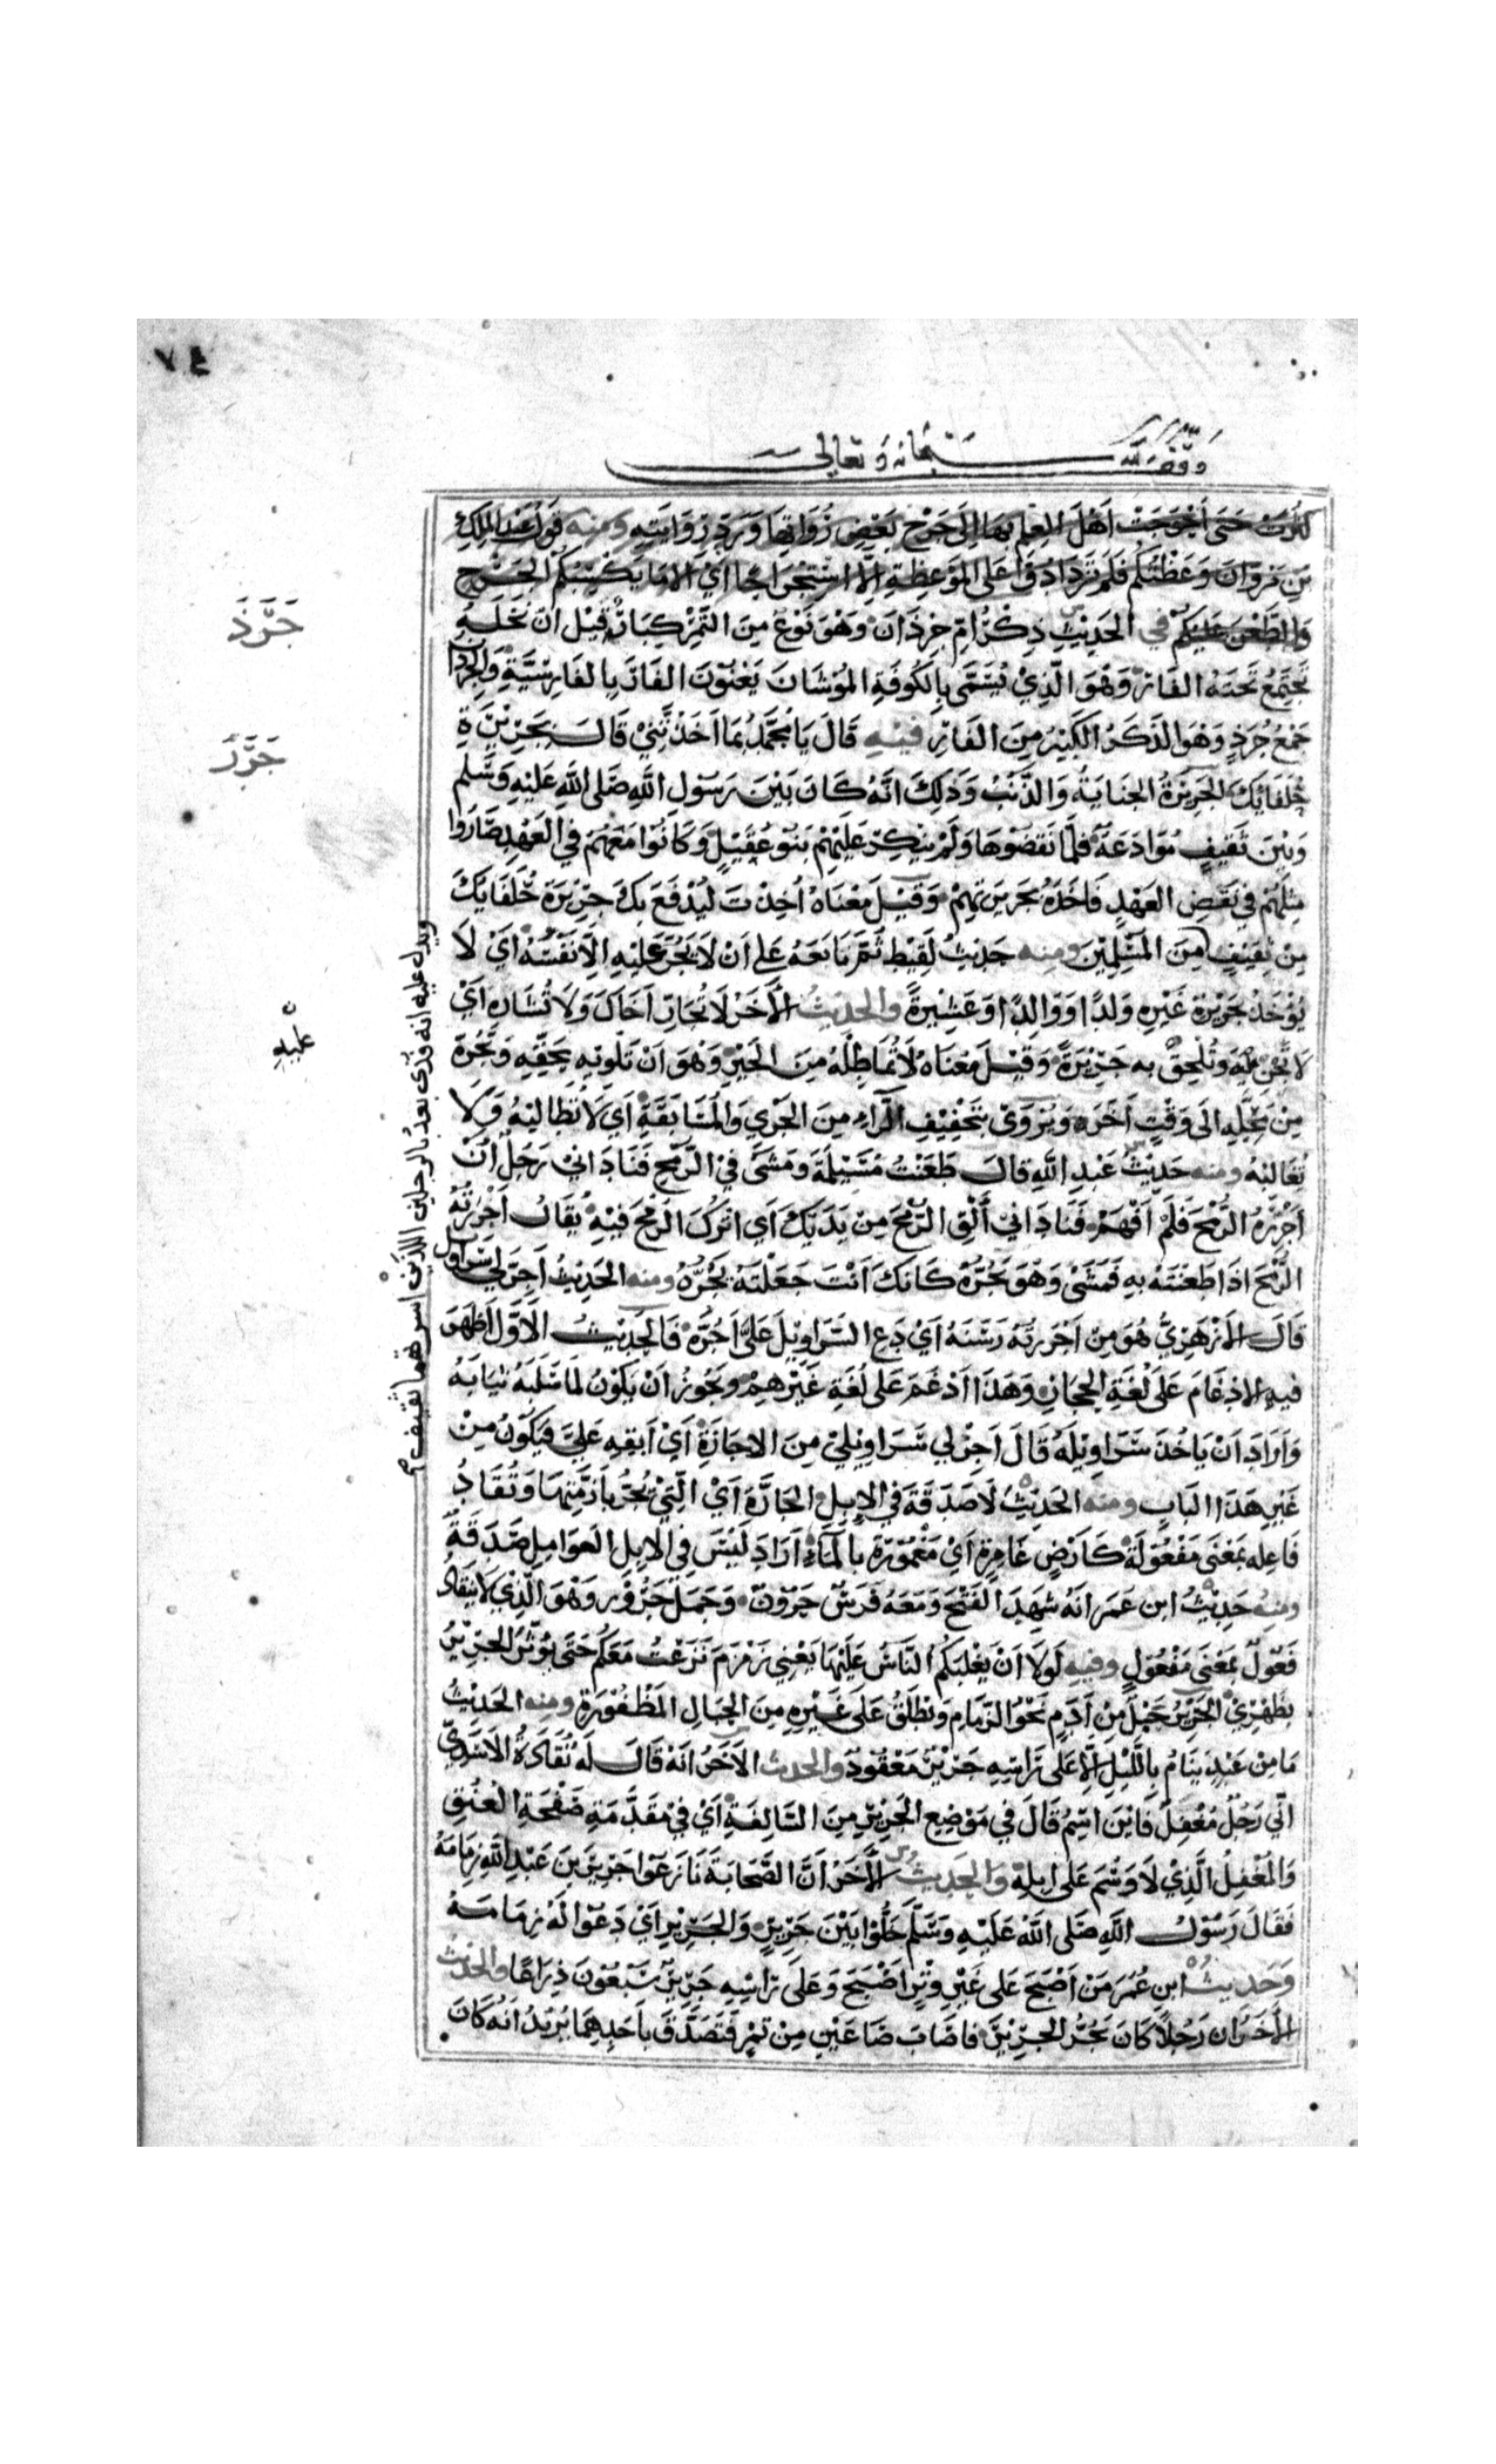 ٧٤
وقف لله سبحانه وتعالى
كثرت حتى أحوجت أهل العلم بها إلى جرح بعض رواتها ورد روايته ومنه قول عبد الملك
بن مروان وعظتكم فلم تزدادوا على الموعظة إلا استجراحا أي إلا ما يكسبكم الجرح
والطعن عليكم في الحديث ذكر أم جرذان وهو نوع من التمر كبار قيل ان نخله
يجتمع تحته الفار وهو الذي يسمى بالكوفة الموشان يعنون الفار بالفارسية والجرذان
جمع جرذ وهو الذكر الكبير من الفار فيه قال يا محمد بما أخذتني قال بجريرة
حلفايك الجريرة الجناية والذنب وذلك انه كان بين رسول الله صلى الله عليه وسلم
وبين ثقيف موادعة فلما نقضوها ولم ينكر عليهم بنو عقيل وكانوا معهم في العهد صاروا
مثلهم في نقض العهد فاخذه بجريرتهم وقيل معناه أخذت ليدفع بك جريرة حلفايك
من ثقيف من المسلمين ومنه حديث لقيط ثم بايعه على ان لا يجر عليه الا نفسه أي لا
يؤخذ بجريرة غيره ولدا او والدا او عشيرة والحديث الآخر لا تجار اخاك ولا تشاره أي
لا تجن عليه وتلحق به جريرة وقيل معناه لا تماطله من الجر وهو ان تلويه بحقه وتجره
من محله الى وقت آخر ويروى بتخفيف الراء من الجري والمسابقة أي لا تطاوله ولا
تغالبه ومنه حديث عبد الله قال طعنت مسيلمة ومشى في الرمح فناداني رجل أن
أجرره الرمح فلم أفهم فناداني ألق الرمح من يديك أي اترك الرمح فيه يقال أجررته
الرمح اذا طعنته به فمشى وهو يجره كانك انت جعلته يجره ومنه الحديث أجر لي سراويلي
قال الأزهري هو من أجررته رسنه أي دع السراويل علي أجره فالحديث الاول أظهر
فيه الادغام على لغة الحجاز وهذا ادغم على لغة غيرهم ويجوز ان يكون لما سلبه ثيابه
وأراد ان ياخذ سراويله قال أجز لي سراويلي من الاجازة أي أبقه علي فيكون من
غير هذا الباب ومنه الحديث لا صدقة في الإبل الجارة أي التي تجر بأزمتها وتقاد
فاعله بمعنى مفعولة كأرض غامرة أي مغمورة بالماء أراد ليس في الابل العوامل صدقة
ومنه حديث ابن عمر انه شهد الفتح ومعه فرس حرون وجمل جرور وهو الذي لا ينقاد
فعول بمعنى مفعول وفيه لولا ان يغلبكم الناس عليها يعني زمزم نزعت معكم حتى يؤثر الجرير
بظهري الجرير حبل من أدم نحو الزمام ويطلق على غيره من الحبال المظفورة ومنه الحديث
ما من عبد ينام بالليل إلا على راسه جرير معقود والحديث الآخر انه قال له نقادة الاسدي
اني رجل مغفل فاين اسم قال في موضع الجرير من السالفة أي في مقدمة صفحة العنق
والمغفل الذي لا وسم على ابله والحديث الآخر أن الصحابة نازعوا جرير بن عبد الله زمامه
فقال رسول الله صلى الله عليه وسلم خلوا بين جرير والجرير أي دعوا له زمامه
وحديث ابن عمر من أصبح على غير وتر اصبح وعلى راسه جرير سبعون ذراعا والحديث
الآخر ان رجلا كان يجر الجرير فاصاب صاعين من تمر فتصدق باحدهما يريد انه كان
جرذ
جرر
عليه
ويدل عليه انه فدي بعد بالرجلين اللذين اسرتهما ثقيف